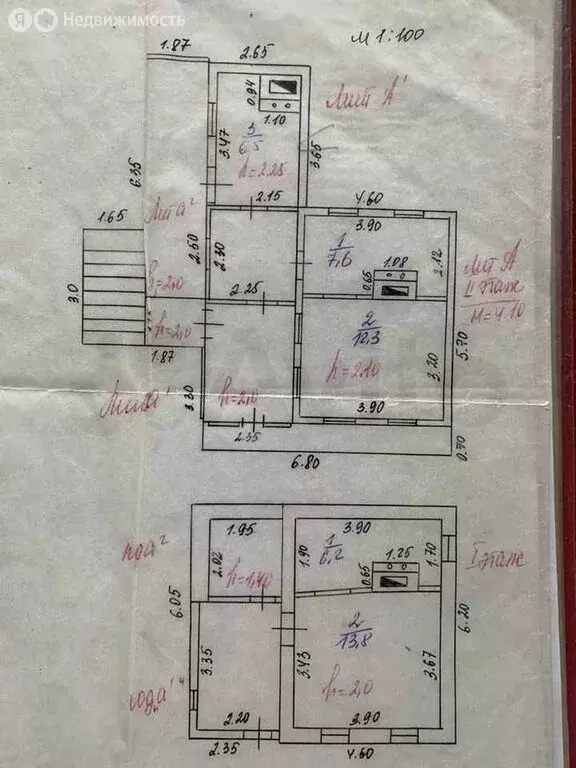 Я Недвижимость
м 1:100
1.87
2.65
0.94
1.10
Лит А'
3
6.5
3.47
h=2.25
3.65
6.35
2.15
4.60
Лит а²
1.65
3.90
2.50
2.30
1
7.6
1.08
2.12
0.65
Лит А
II этаж
H=4.10
3.0
h=2.0
2.25
h=2.0
2
12.3
h=2.10
3.20
5.70
1.87
3.30
h=2.0
3.90
2.35
6.80
0.70
1.95
3.90
1.90
1
6.2
1.25
1.70
I этаж
2.02
h=1.40
0.65
6.05
2
13.8
6.20
3.35
3.43
3.67
h=2.0
2.20
3.90
2.35
4.60